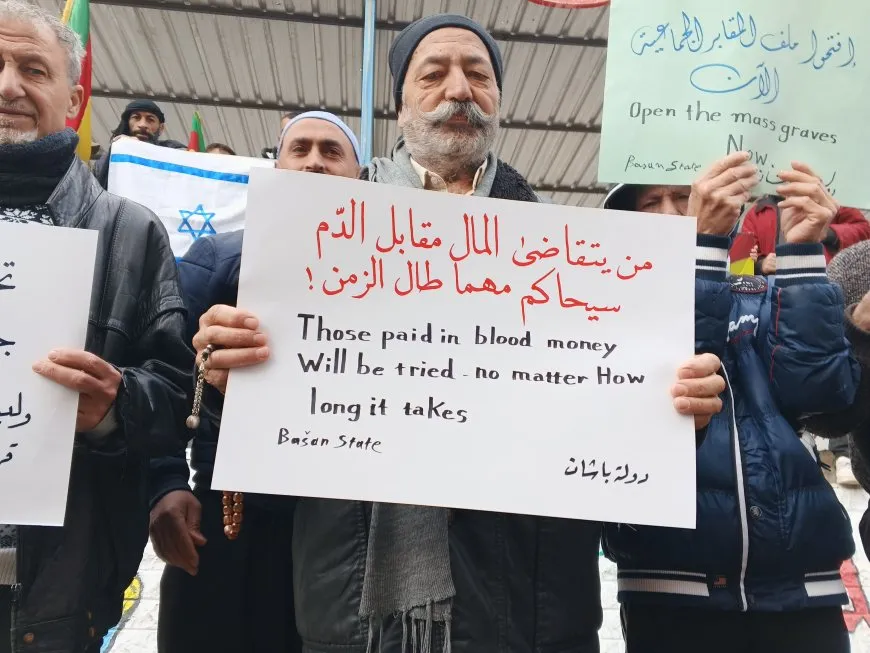 افتحوا ملف المقابر الجماعية
الآن
Open the mass graves
Now
Bašan State
من يتقاضىٰ المال مقابل الدّم
سيحاكم مهما طال الزمن !
Those paid in blood money
Will be tried - no matter How
long it takes
Bašan State
دولة باشان